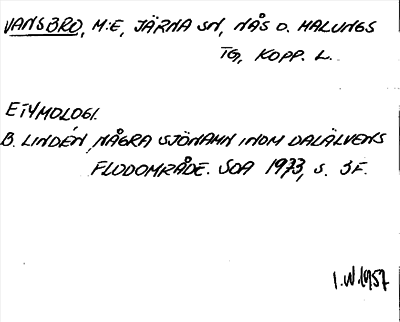 VANSBRO, M:E, JÄRNA SN, NÅS O. MALUNGS
TG, KOPP. L.
ETYMOLOGI.
B. LINDÉN, NÅGRA SJÖNAMN INOM DALÄLVENS
FLODOMRÅDE. SOA 1973, S. 3F.
I.W.1957